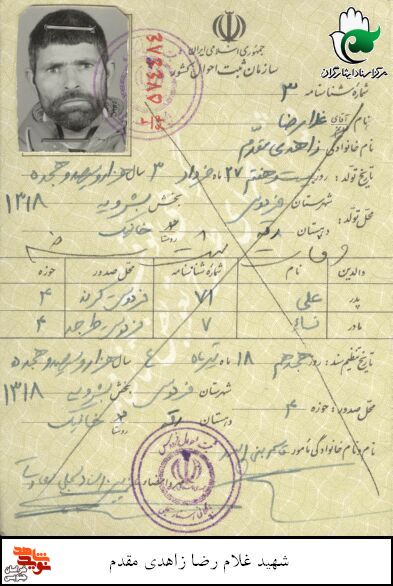 جمهوری اسلامی ایران
سازمان ثبت احوال کشور
مرکز اسناد ایثارگران
۴۷۴۴۸۵
شماره شناسنامه ۳
نام آقای غلامرضا
نام خانوادگی زاهدی مقدم
تاریخ تولد: روز بیست و هفتم ۲۷ ماه خرداد ۳ سال هزار و سیصد و هجده ۱۳۱۸
محل تولد: شهرستان فردوس بخش بشرویه
دهستان رقه روستا خانیک
وفات
والدین نام شماره شناسنامه محل صدور حوزه
پدر علی ۷۱ فردوس کرند ۴
مادر نساء ۷ فردوس ۴
تاریخ تنظیم سند: روز هجدهم ۱۸ ماه تیر ماه ۴ سال هزار و سیصد و هجده ۱۳۱۸
محل صدور: حوزه ۴ شهرستان فردوس بخش بشرویه
دهستان رقه روستا خانیک
نام و نام خانوادگی مامور
شهید غلام رضا زاهدی مقدم